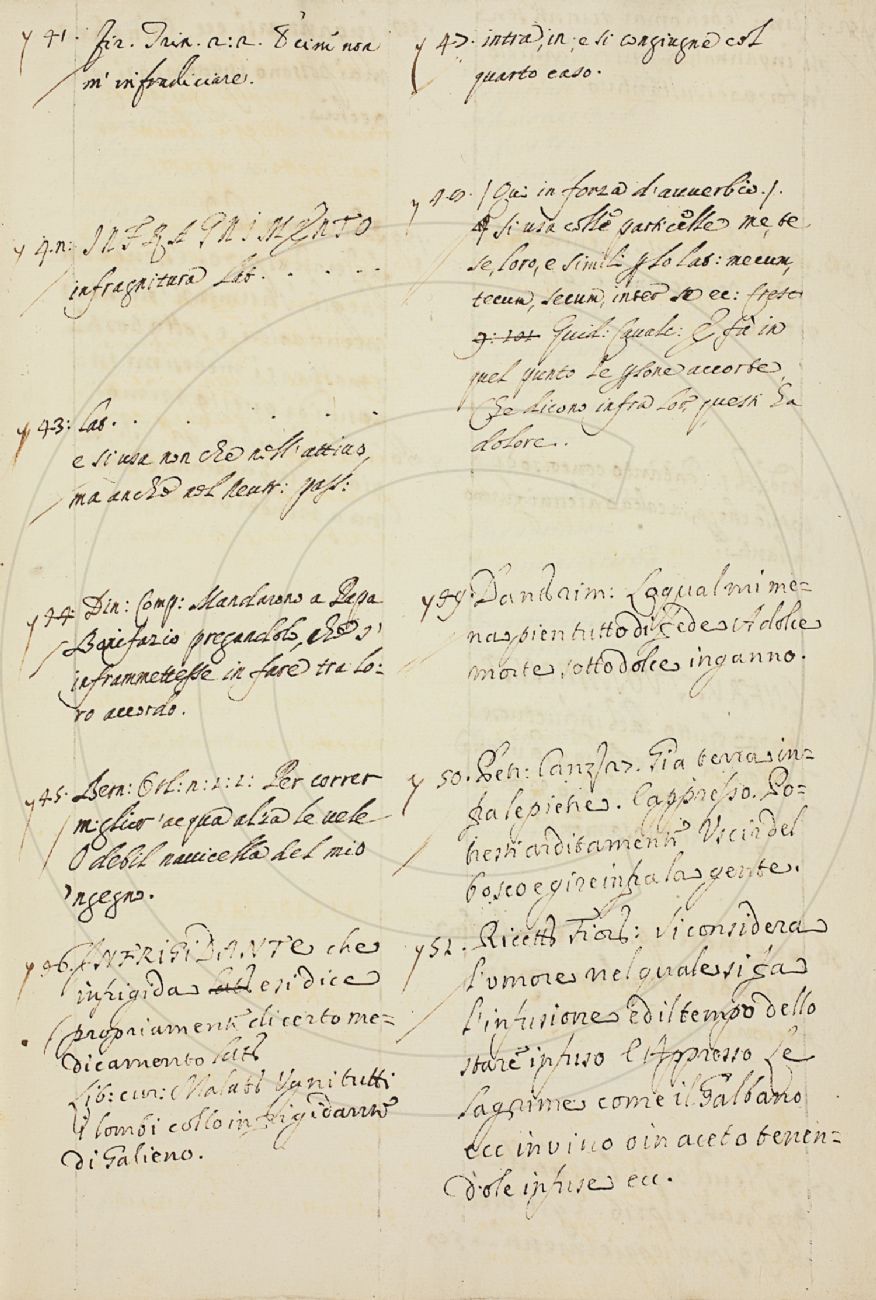 41. Fir. Trin. 2: 2.
m' infradiciare.
42: INFRAGNIMENTO
infragnitura Lat. . . . .
43: Lat. . . . . .
e si usa non che nell'attivo,
ma anche nel neutr: pass:
44: Din: Comp: Mandarono a Papa
Bonifazio pregandolo, che s'
inframmettesse in fare tra lo:
ro accordo.
45. Bern: Orl: 2: 1: 1: Per correr
miglior acqua alza le vele
O debil navicella del mio
'ngegno.
46. INFRIGIDANTE che
infrigida Lat e si dice
propriamente di certo me=
dicamento Lat
Lib: cur: Malatt Ugni tutti
i lombi collo infrigidante
di Galieno.
47. intra, in; e si congiugne col
quarto caso.
48. / Qui in forza d'avverbio. /.
si usa colle particelle me, te
se, loro, e simili lo Lat: mecum,
tecum, secum, inter se ec:
Guid: Cavalc: E fa in
quel punto le persone accorte,
Che dicono infra lor, questi ha
dolore.
49: Dant rim: La qual mi me=
na pien tutto di fede A dolce
morte sotto dolce inganno.
50. Petr: Canz 7. Fia terra in=
fra le pietre. E appresso. Po=
tresti arditamente Uscir del
bosco e gire infra la gente.
51. Ricett Fior: si considera
l'umore nel quale si fa
l'infusione ed il tempo dello
stare infuso E Appresso Le
lagrime come il Galbano
ecc in vino o in aceto tenen=
dole infuse ecc.